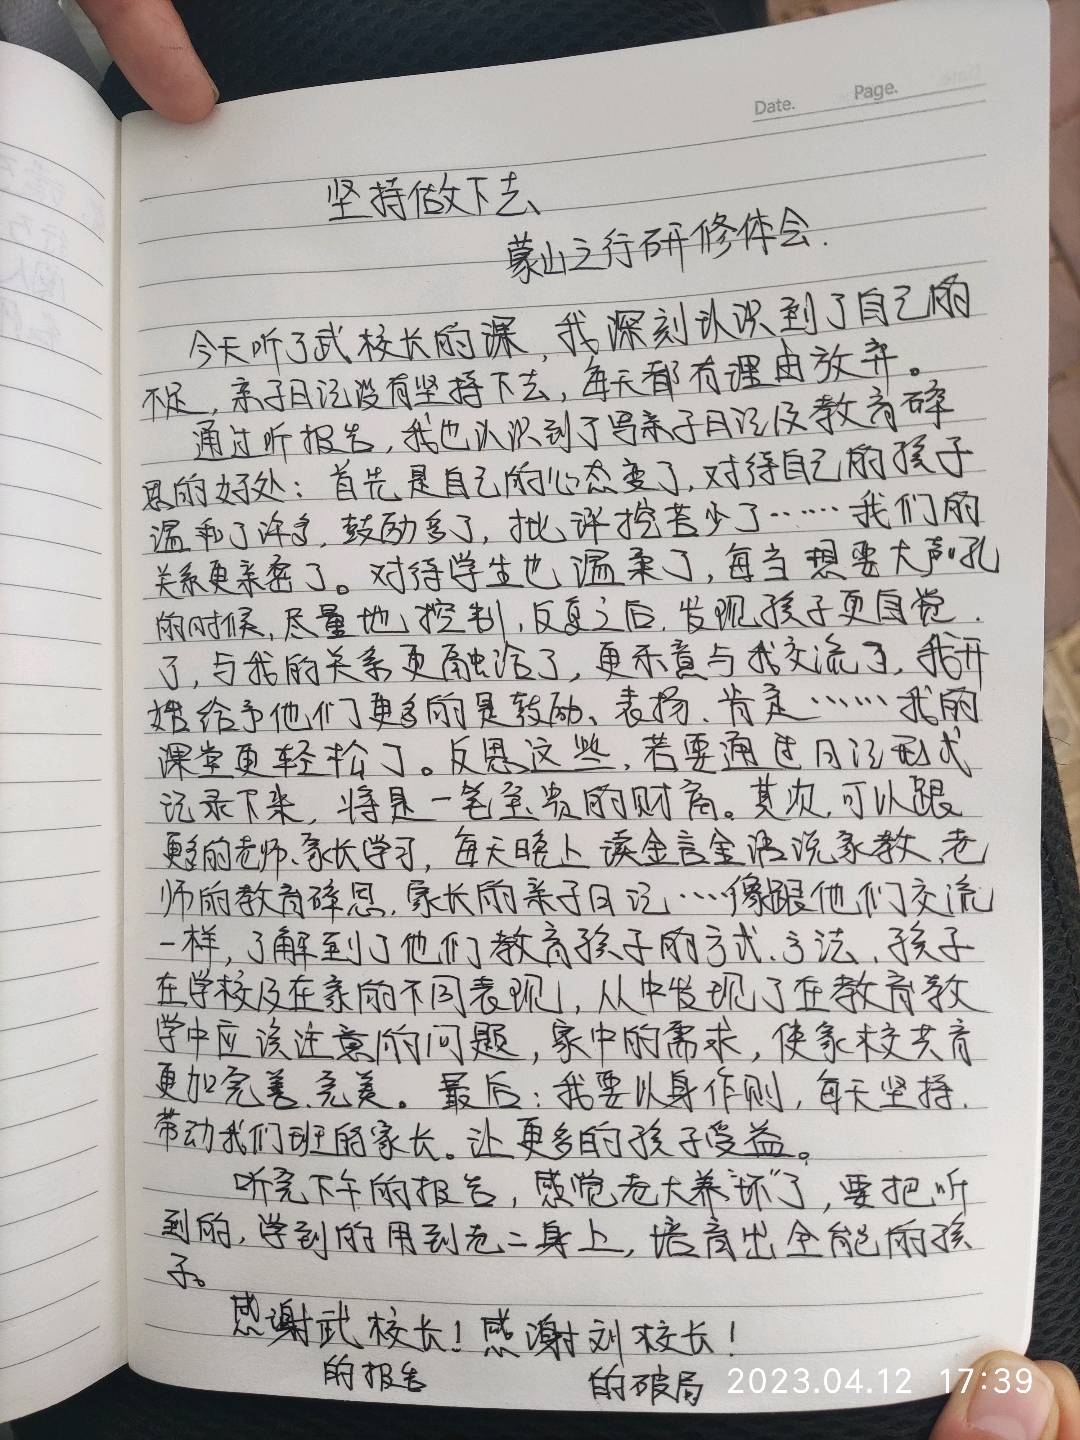 Date. Page.
坚持做下去
蒙山之行研修体会.
今天听了武校长的课，我深刻认识到了自己的
不足，亲子日记没有坚持下去，每天都有理由放弃。
通过听报告，我也认识到了写亲子日记及教育碎
思的好处：首先是自己的心态变了，对待自己的孩子
温和了许多，鼓励多了，批评挖苦少了……我们的
关系更亲密了。对待学生也温柔了，每当想要大声吼
的时候，尽量地控制，反复之后，发现孩子更自觉
了，与我的关系更融洽了，更乐意与我交流了，我开
始给予他们更多的是鼓励、表扬、肯定……我的
课堂更轻松了。反思这些，若要通过日记形式
记录下来，将是一笔宝贵的财富。其次，可以跟
更多的老师、家长学习，每天晚上读金言金语说家教、老
师的教育碎思，家长的亲子日记…像跟他们交流
一样，了解到了他们教育孩子的方式、方法，孩子
在学校及在家的不同表现，从中发现了在教育教
学中应该注意的问题，家中的需求，使家校共育
更加完善、完美。最后：我要以身作则，每天坚持，
带动我们班的家长。让更多的孩子受益。
听完下午的报告，感觉老大养“坏”了，要把听
到的，学到的用到老二身上，培育出全能的孩
子。
感谢武校长！感谢刘校长！
的报告 的破局
2023.04.12 17:39